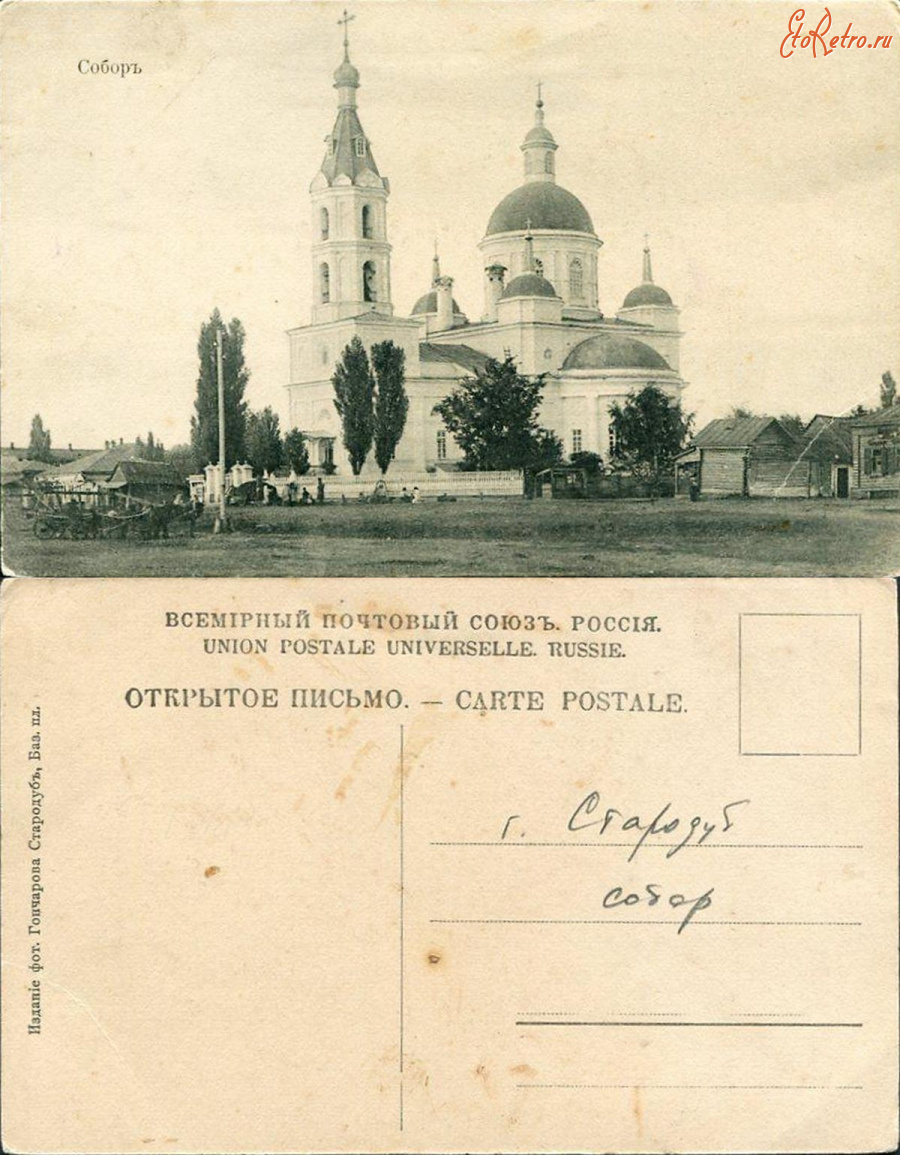 EtoRetro.ru
Соборъ
ВСЕМІРНЫЙ ПОЧТОВЫЙ СОЮЗЪ. РОССІЯ.
UNION POSTALE UNIVERSELLE. RUSSIE.
ОТКРЫТОЕ ПИСЬМО. — CARTE POSTALE.
Изданіе фот. Гончарова Стародубъ, Баз. пл.
г. Стародуб
собор